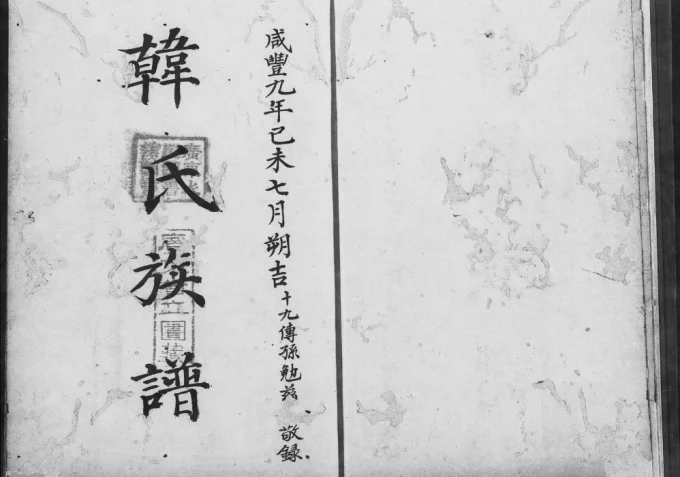 咸豐九年己未七月朔吉十九傳孫勉茲敬錄
韓氏族譜